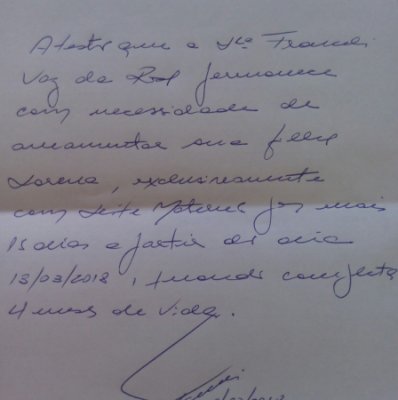 Atesto que a Sra Francli
Vaz da permanece
com necessidade de
amamentar sua filha
Lorena, exclusivamente
com Leite Materno por mais
15 dias a partir do dia
13/03/2018, quando completa
4 meses de vida.